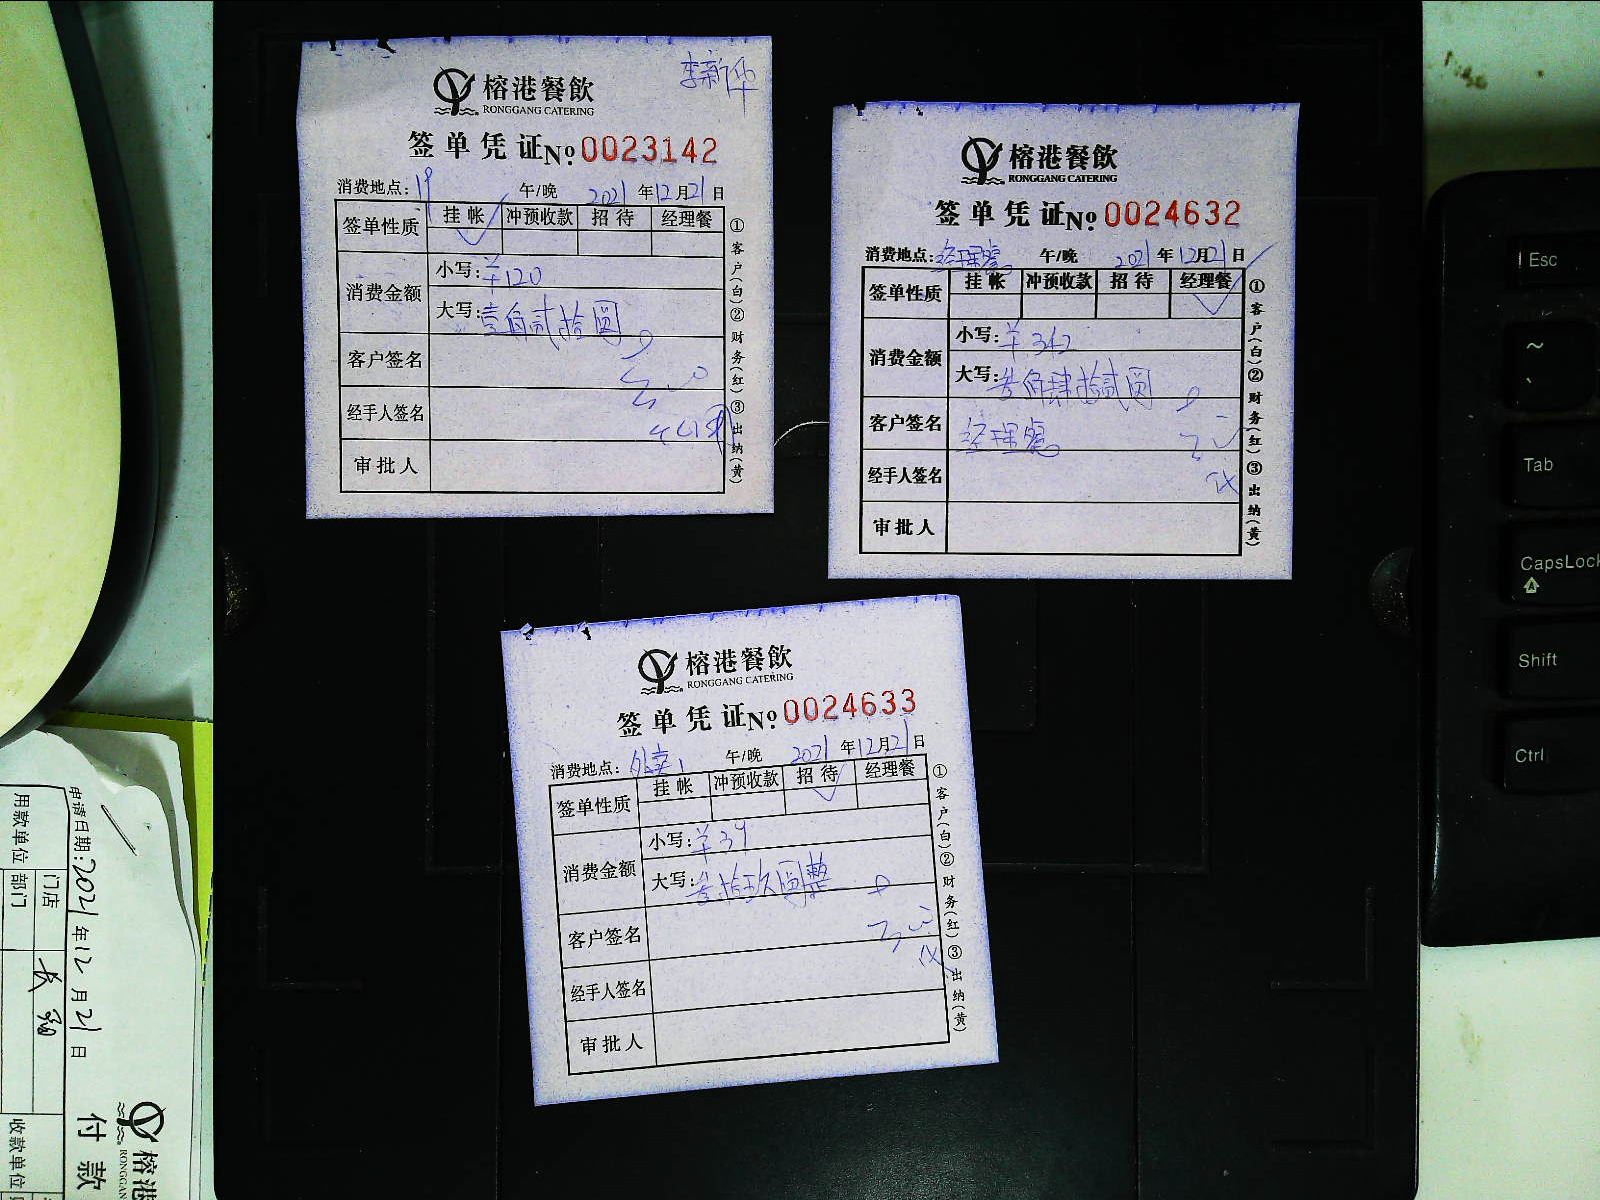 李新华
榕港餐飲
RONGGANG CATERING
签单凭证No.0023142
消费地点：19 午/晚 2021年12月21日
签单性质 挂帐 冲预收款 招待 经理餐
消费金额 小写：¥120
大写：壹佰贰拾圆
客户签名
经手人签名
审批人
①客户(白)②财务(红)③出纳(黄)
榕港餐飲
RONGGANG CATERING
签单凭证No.0024632
消费地点：经理餐 午/晚 2021年12月21日
签单性质 挂帐 冲预收款 招待 经理餐
消费金额 小写：¥342
大写：叁佰肆拾贰圆
客户签名 经理餐
经手人签名
审批人
①客户(白)②财务(红)③出纳(黄)
榕港餐飲
RONGGANG CATERING
签单凭证No.0024633
消费地点：外卖1 午/晚 2021年12月21日
签单性质 挂帐 冲预收款 招待 经理餐
消费金额 小写：¥39
大写：叁拾玖圆整
客户签名
经手人签名
审批人
①客户(白)②财务(红)③出纳(黄)
榕港
RONGGAN
付款
申请日期：2021年12月21日
用款单位 门店
部门
收款单位
Esc
~
、
Tab
CapsLock
Shift
Ctrl